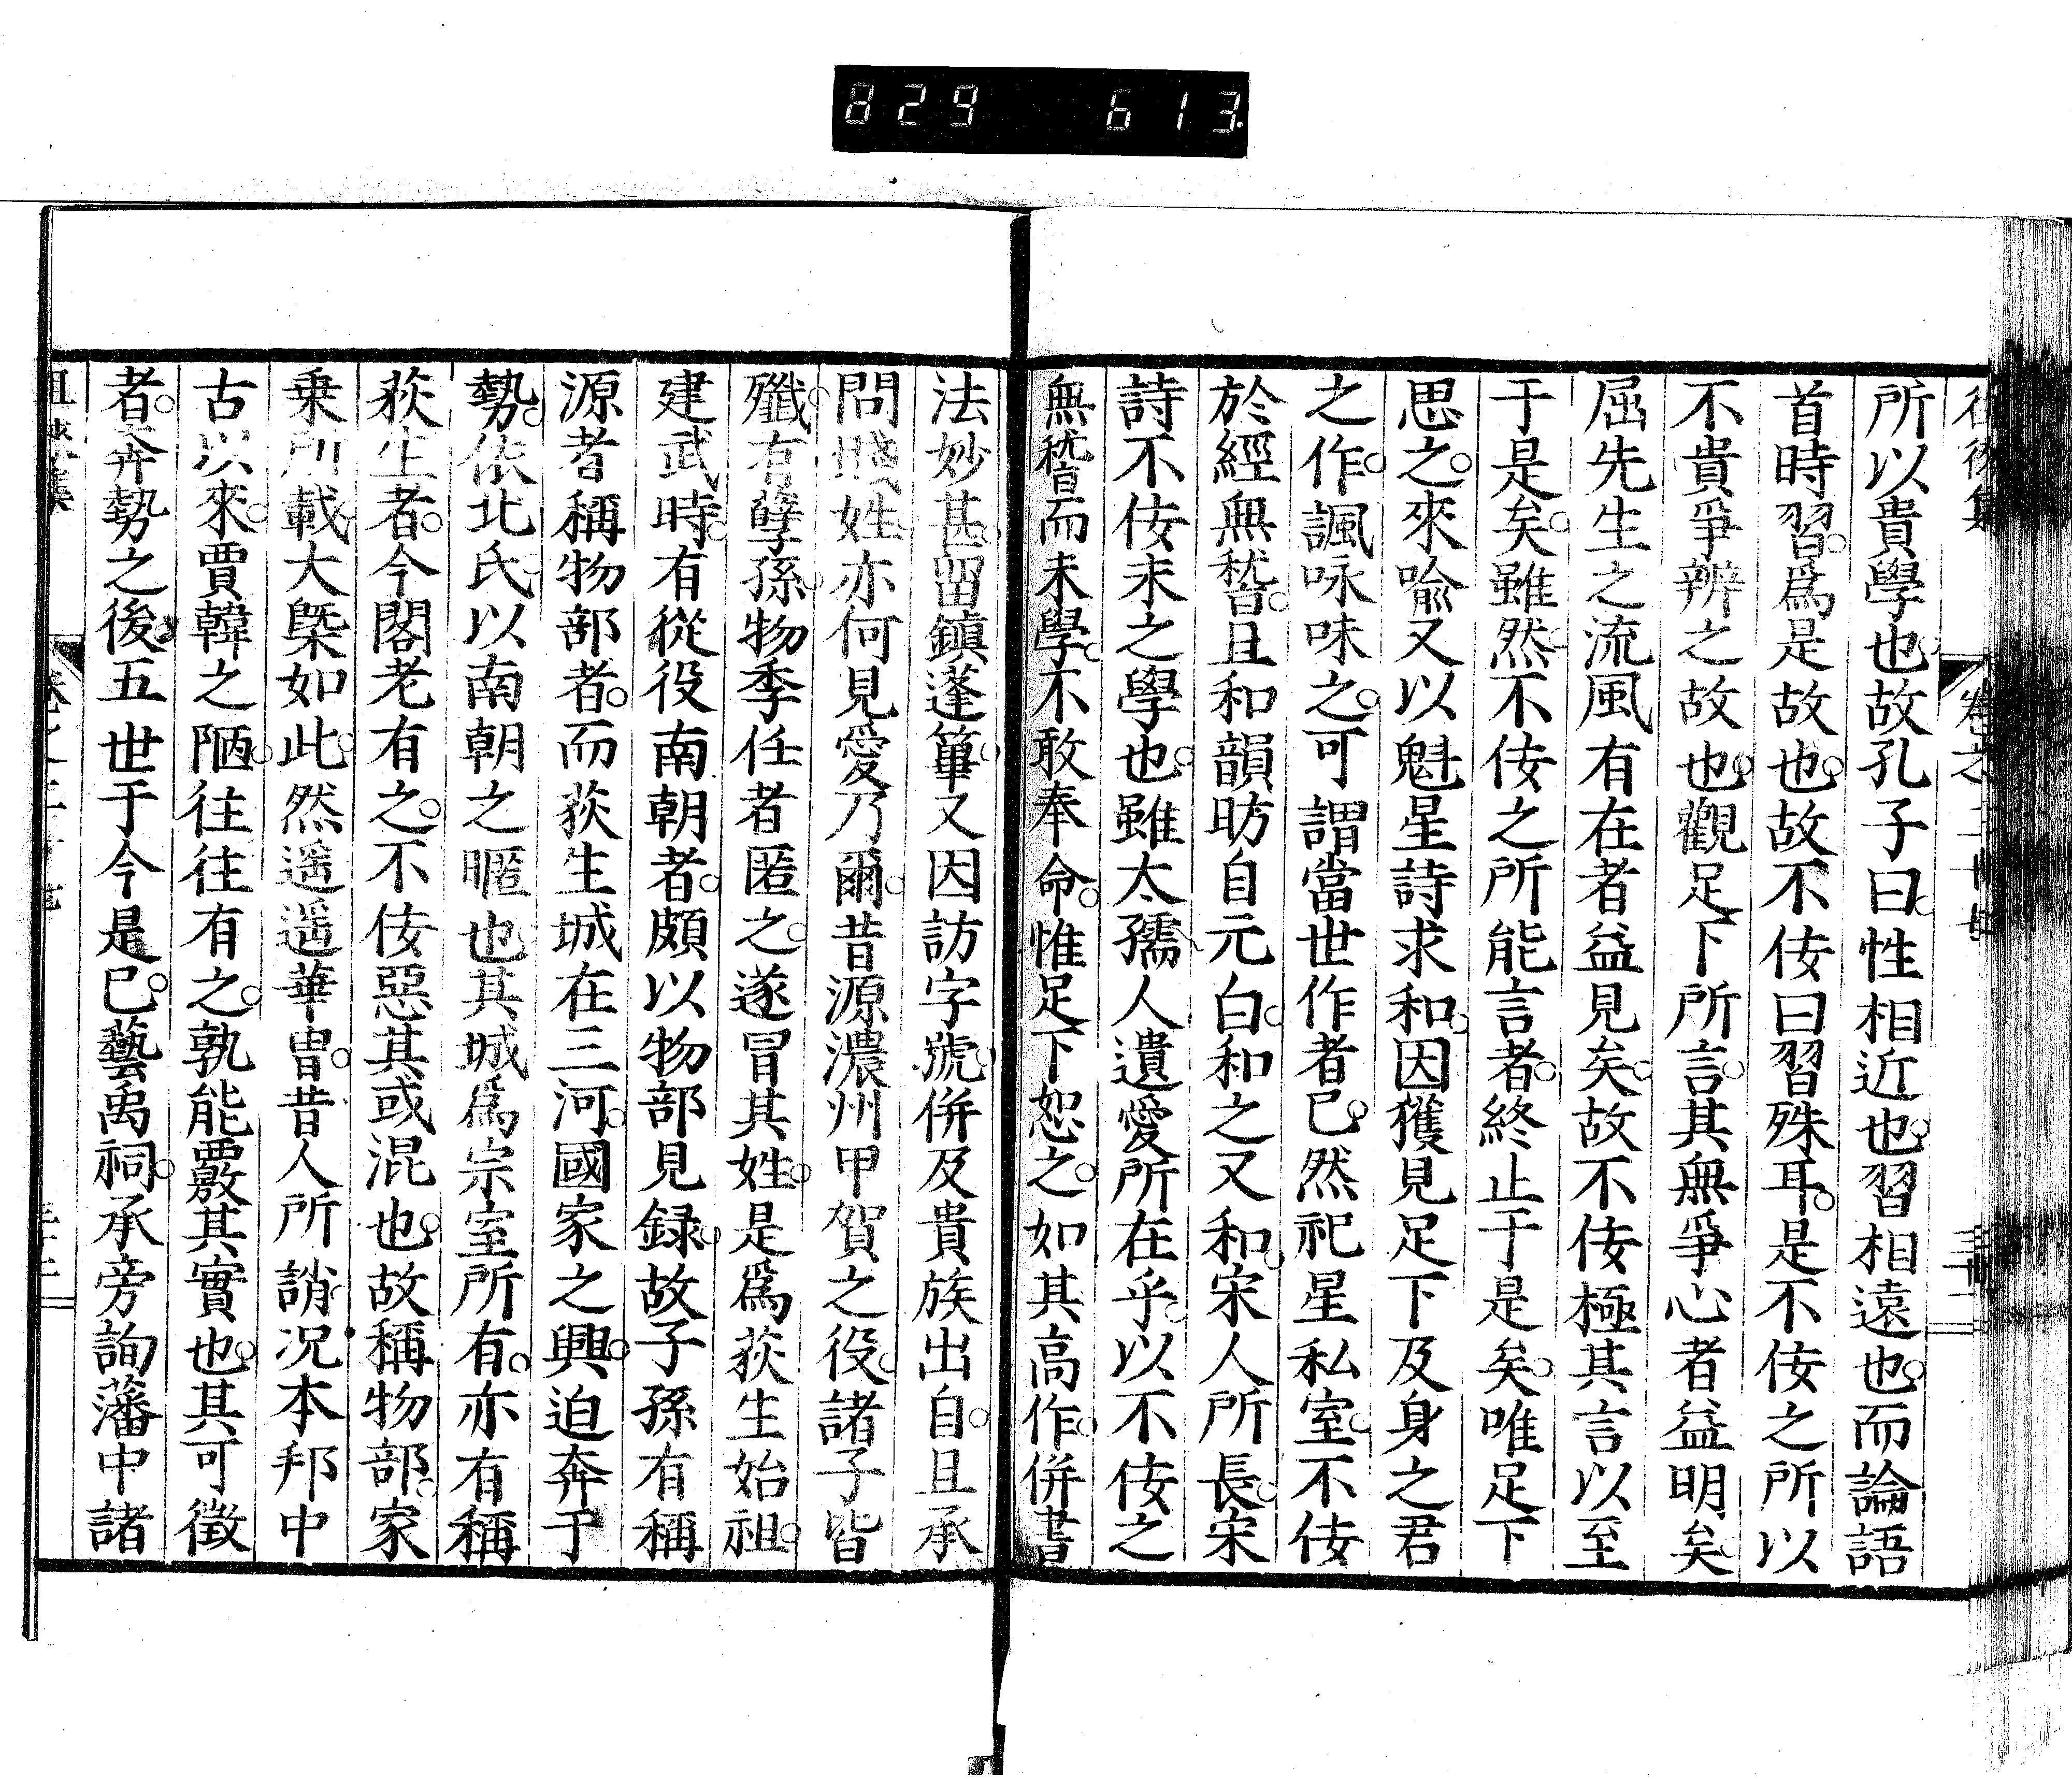 829 613
所以貴學也故孔子曰性相近也習相遠也而論語
首時習爲是故也故不佞曰習殊耳是不佞之所以
不貴爭辨之故也觀足下所言其無爭心者益明矣
屈先生之流風有在者益見矣故不佞極其言以至
于是矣雖然不佞之所能言者終止于是矣唯足下
思之來喻又以魁星詩求和因獲見足下及身之君
之作諷咏味之可謂當世作者已然祀星私室不佞
於經無嵇且和韻昉自元白和之又和宋人所長宋
詩不佞未之學也雖太孺人遺愛所在乎以不佞之
無嵇而未學不敢奉命惟足下恕之如其高作併書
法妙甚留鎮蓬蓽又因訪字號併及貴族出自且承
問賤姓亦何見愛乃爾昔源濃州甲賀之役諸子皆
殲有孽孫物季任者匿之遂冒其姓是爲荻生始祖
建武時有從役南朝者頗以物部見録故子孫有稱
源者稱物部者而荻生城在三河國家之興迫奔于
勢依北氏以南朝之暱也其城爲宗室所有亦有稱
荻生者今閣老有之不佞惡其或混也故稱物部家
乗所載大槩如此然遥遥華冑昔人所誚况本邦中
古以來賈韓之陋往往有之孰能覈其實也其可徵
者奔勢之後五世于今是已藝禹祠承旁詢藩中諸